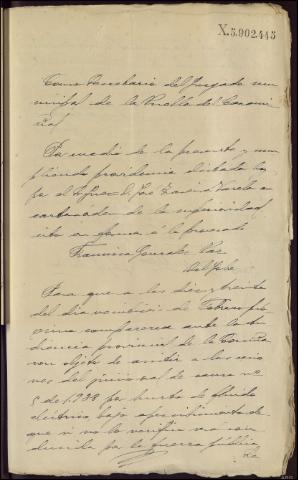 X.5.902.445
Como Secretario del Juzgado mu
nicipal de la Puebla del Carami
ñal
Por medio de la presente y cum
pliendo providencia dictada
por el Señor D. José García Varela
de la superioridad
cito en forma á la procesada
Francisca Gonzalez
Para que a las diez y treinta
del dia veintiseis de Febrero pró
ximo comparezca ante la Au
diencia provincial de la Coruña
con objeto de asistir a las sesio
nes del juicio oral de causa nº
8 de 1938 por hurto de fluido
eléctrico bajo apercibimiento de
que si no lo verifica sera con
ducida por la fuerza pública